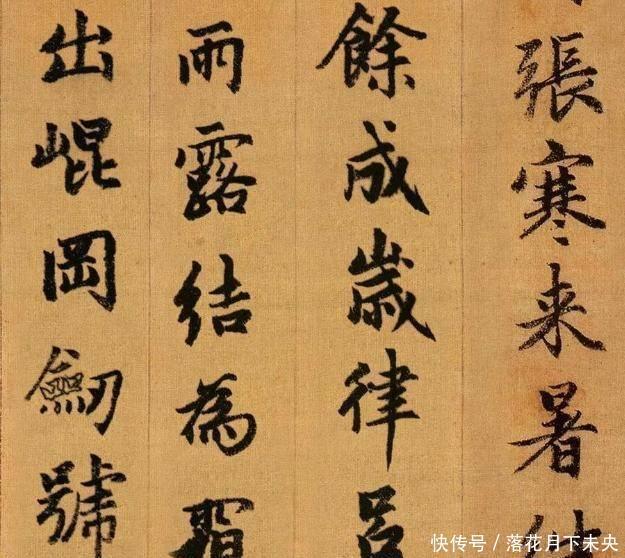 張寒来暑
餘成歲律呂
雨露結為霜
出崐岡劒號
快传号 / 落花月下未央